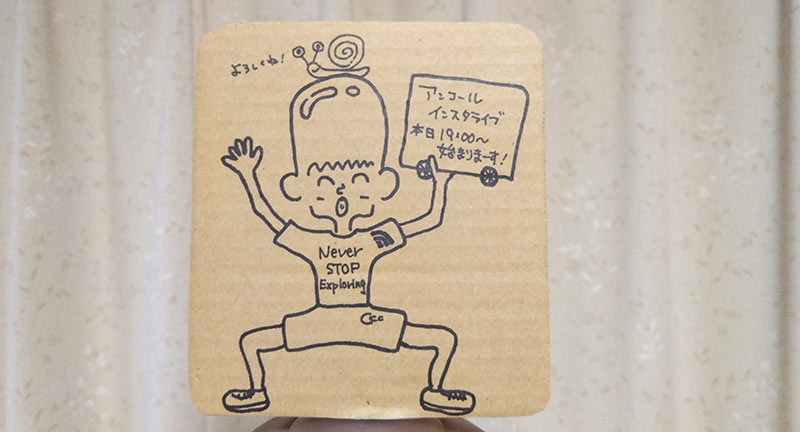 よろしくね!
アンコール
インスタライブ
本日 19:00〜
始まりまーす!
Never
STOP
Exploring